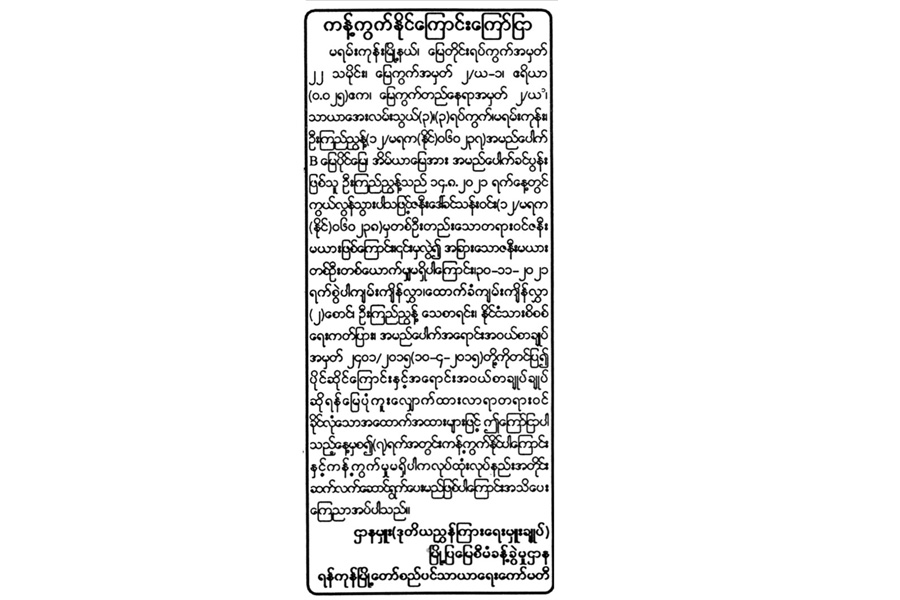 ကန့်ကွက်နိုင်ကြောင်းကြော်ငြာ
မရမ်းကုန်းမြို့နယ်၊ မြေတိုင်းရပ်ကွက်အမှတ်
၂၂ သမိုင်း၊ မြေကွက်အမှတ် ၂/ယ-၁၊ ဧရိယာ
(၀.၀၂၅)ဧက၊ မြေကွက်တည်နေရာအမှတ် ၂/ယ၁၊
သာယာအေးလမ်းသွယ်(၃)၊(၃)ရပ်ကွက်၊မရမ်းကုန်း၊
ဦးကြည်ညွန့်(၁၂/မရက(နိုင်)၀၆၀၂၃၇)အမည်ပေါက်
B မြေပိုင်မြေ၊ အိမ်ယာမြေအား အမည်ပေါက်ခင်ပွန်း
ဖြစ်သူ ဦးကြည်ညွန့်သည် ၁၄.၈.၂၀၂၁ ရက်နေ့တွင်
ကွယ်လွန်သွားပါသဖြင့်ဇနီးဒေါ်ခင်သန်းဝင်း(၁၂/မရက
(နိုင်)၀၆၀၂၃၈)မှတစ်ဦးတည်းသောတရားဝင်ဇနီး
မယားဖြစ်ကြောင်း၊၎င်းမှလွဲ၍ အခြားသောဇနီးမယား
တစ်ဦးတစ်ယောက်မျှမရှိပါကြောင်း၊၃၀-၁၁-၂၀၂၁
ရက်စွဲပါကျမ်းကျိန်လွှာ၊ထောက်ခံကျမ်းကျိန်လွှာ
(၂)စောင်၊ ဦးကြည်ညွန့် သေစာရင်း၊ နိုင်ငံသားစိစစ်
ရေးကတ်ပြား၊ အမည်ပေါက်အရောင်းအဝယ်စာချုပ်
အမှတ် ၂၄၀၁/၂၀၁၅(၁၀-၄-၂၀၁၅)တို့ကိုတင်ပြ၍
ပိုင်ဆိုင်ကြောင်းနှင့်အရောင်းအဝယ်စာချုပ်ချုပ်
ဆိုရန်မြေပုံကူးလျှောက်ထားလာရာတရားဝင်
ခိုင်လုံသောအထောက်အထားများဖြင့် ဤကြော်ငြာပါ
သည့်နေ့မှစ၍(၇)ရက်အတွင်းကန့်ကွက်နိုင်ပါကြောင်း
နှင့်ကန့်ကွက်မှုမရှိပါကလုပ်ထုံးလုပ်နည်းအတိုင်း
ဆက်လက်ဆောင်ရွက်ပေးမည်ဖြစ်ပါကြောင်းအသိပေး
ကြေညာအပ်ပါသည်။
ဌာနမှူး(ဒုတိယညွှန်ကြားရေးမှူးချုပ်)
မြို့ပြမြေစီမံခန့်ခွဲမှုဌာန
ရန်ကုန်မြို့တော်စည်ပင်သာယာရေးကော်မတီ